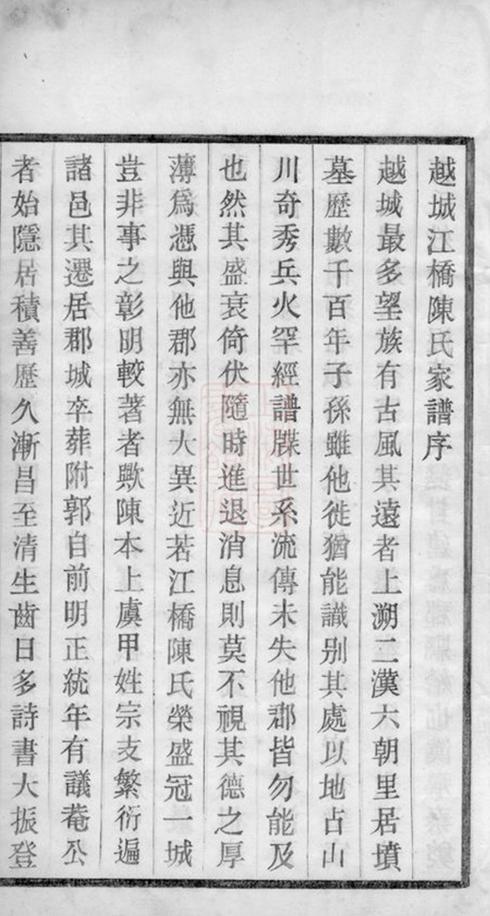 越城江橋陳氏家譜序
越城最多望族有古風其遠者上溯二漢六朝里居墳
墓歷數千百年子孫雖他徙猶能識别其處以地占山
川奇秀兵火罕經譜牒世系流傳未失他郡皆勿能及
也然其盛衰倚伏隨時進退消息則莫不視其德之厚
薄爲憑與他郡亦無大異近若江橋陳氏榮盛冠一城
豈非事之彰明較著者歟陳本上虞甲姓宗支繁衍遍
諸邑其遷居郡城卒葬附郭自前明正統年有議菴公
者始隱居積善歷久漸昌至清生齒日多詩書大振登